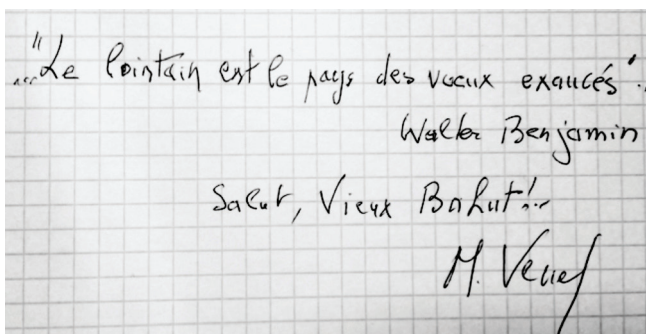 ..."Le lointain est le pays des vœux exaucés"..
Walter Benjamin
Salut, Vieux Bahut!..
M.